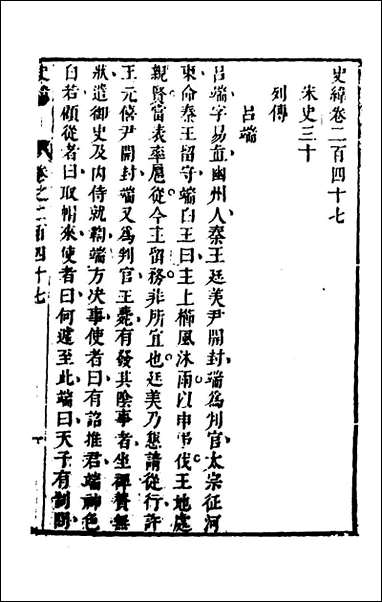 史緯卷二百四十七
宋史三十
列傳
呂端
呂端字易直幽州人秦王廷美尹開封端爲判官太宗征河
東命秦王留守端白王曰主上櫛風沐雨以申弔伐王地處
親賢當表率扈從今主留務非所宜也廷美乃懇請從行許
王元僖尹開封端又爲判官王薨有發其陰事者坐裨贊無
狀遣御史及内侍就鞫端方決事使者曰有詔推君端神色
自若顧從者曰取帽來使者曰何遽至此端曰天子有制問
史緯
卷之二百四十七
一